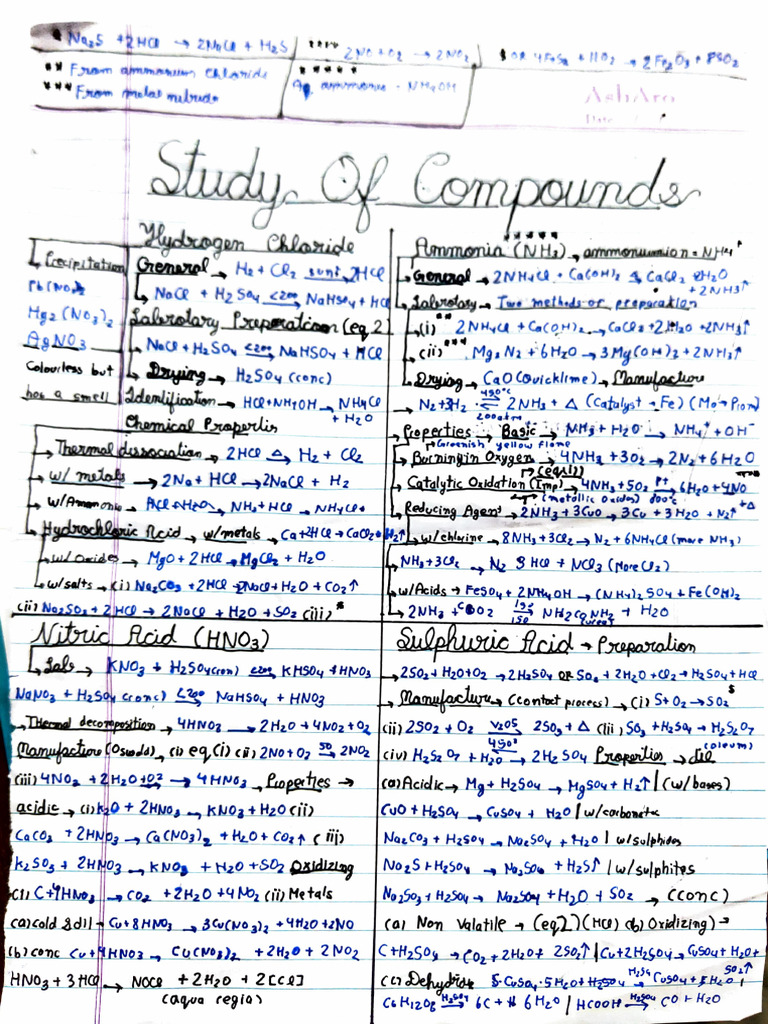 * Na2S + 2HCl → 2NaCl + H2S
**** 2NO + O2 → 2NO2
$ OR 4FeS2 + 11O2 → 2Fe2O3 + 8SO2
** From ammonium chloride
*** From metal nitride
*****
Aq. ammonia - NH4OH
Study Of Compounds
Hydrogen Chloride
Precipitation
Pb(NO3)2
Hg2(NO3)2
AgNO3
Colourless but
has a smell
General → H2 + Cl2 sunl→ 2HCl
NaCl + H2SO4 <200→ NaHSO4 + HCl
Laborotary Preparation (eq 2)
NaCl + H2SO4 <200→ NaHSO4 + HCl
Drying → H2SO4 (conc)
Identification → HCl + NH4OH → NH4Cl + H2O
Chemical Propertis
Thermal dissociation → 2HCl △→ H2 + Cl2
w/ metals → 2Na + HCl → 2NaCl + H2
w/Ammonia → NH3 + HCl → NH4Cl
Hydrochloric Acid → w/metals → Ca + 2HCl → CaCl2 + H2↑
w/Oxides → MgO + 2HCl → MgCl2 + H2O
w/salts → (i) Na2CO3 + 2HCl → 2NaCl + H2O + CO2↑
(ii) Na2SO3 + 2HCl → 2NaCl + H2O + SO2 (iii) *
Ammonia (NH3) ***** → ammoniumion = NH4+
General → 2NH4Cl + Ca(OH)2 → CaCl2 + 2H2O + 2NH3↑
Laborotary → Two methods of preparation
(i) ** 2NH4Cl + Ca(OH)2 → CaCl2 + 2H2O + 2NH3↑
(ii) *** Mg3N2 + 6H2O → 3Mg(OH)2 + 2NH3↑
Drying → CaO (Quicklime) → Manufacture
→ N2 + 3H2 450°C ⇌ 200atm 2NH3 + △ (Catalyst → Fe) (Mo → Prom)
Properties → Basic → NH3 + H2O → NH4+ + OH-
→ Greenish yellow flame
Burning in Oxygen → 4NH3 + 3O2 → 2N2 + 6H2O
→ (eq(i)) ****
Catalytic Oxidation (Imp) → 4NH3 + 5O2 Pt→ 800°c 6H2O + 4NO
→ (metallic oxides)
Reducing Agent → 2NH3 + 3CuO → 3Cu + 3H2O + N2↑ + △
w/chlorine → 8NH3 + 3Cl2 → N2 + 6NH4Cl (more NH3)
NH3 + 3Cl2 → N2 3HCl + NCl3 (More Cl2)
w/Acids → FeSO4 + 2NH4OH → (NH4)2SO4 + Fe(OH)2
→ 2NH3 + CO2 150 ⇌ 150 NH2CONH2 + H2O
(urea)
Nitric Acid (HNO3)
Lab → KNO3 + H2SO4(con) <200→ KHSO4 + HNO3
NaNO3 + H2SO4 (conc) <200→ NaHSO4 + HNO3
→ Thermal decomposition → 4HNO3 → 2H2O + 4NO2 + O2
Manufacture (Oswald) → (i) eq(i) (ii) 2NO + O2 50→ 2NO2
(iii) 4NO2 + 2H2O + O2 → 4HNO3 → Properties →
acidic → (i) K2O + 2HNO3 → KNO3 + H2O (ii)
CaCO3 + 2HNO3 → Ca(NO3)2 + H2O + CO2↑ (iii)
K2SO3 + 2HNO3 → KNO3 + H2O + SO2 Oxidizing
(i) C + 4HNO3 → CO2 + 2H2O + 4NO2 (ii) Metals
(a) cold & dil → Cu + 8HNO3 → 3Cu(NO3)2 + 4H2O + 2NO
(b) conc Cu + 4HNO3 → Cu(NO3)2 + 2H2O + 2NO2
HNO3 + 3HCl → NOCl + 2H2O + 2[Cl]
(aqua regia)
Sulphuric Acid → Preparation
→ 2SO2 + H2O + O2 → 2H2SO4 OR SO2 + 2H2O + Cl2 → H2SO4 + HCl
→ Manufacture → (contact process) → (i) S + O2 → SO2 $
(ii) 2SO2 + O2 V2O5 ⇌ 450° 2SO3 + △ (iii) SO3 + H2SO4 → H2S2O7
(oleum)
(iv) H2S2O7 + H2O → 2H2SO4 Properties → dil
(a) Acidic → Mg + H2SO4 → MgSO4 + H2↑ | (w/bases)
CuO + H2SO4 → CuSO4 + H2O | w/carbonate
Na2CO3 + H2SO4 → Na2SO4 + H2O | w/sulphides
Na2S + H2SO4 → Na2SO4 + H2S↑ | w/sulphites
Na2SO3 + H2SO4 → Na2SO4 + H2O + SO2 → (conc)
(a) Non Valatile → (eq2) (HCl) (b) Oxidizing) →
C + H2SO4 → CO2 + 2H2O + 2SO2↑ | Cu + 2H2SO4 → CuSO4 + H2O + SO2↑
(c) Dehydride CuSO4·5H2O + H2SO4 H2SO4→ CuSO4 + 5H2O |
C6H12O6 H2SO4→ 6C + 6H2O | HCOOH H2SO4→ CO + H2O